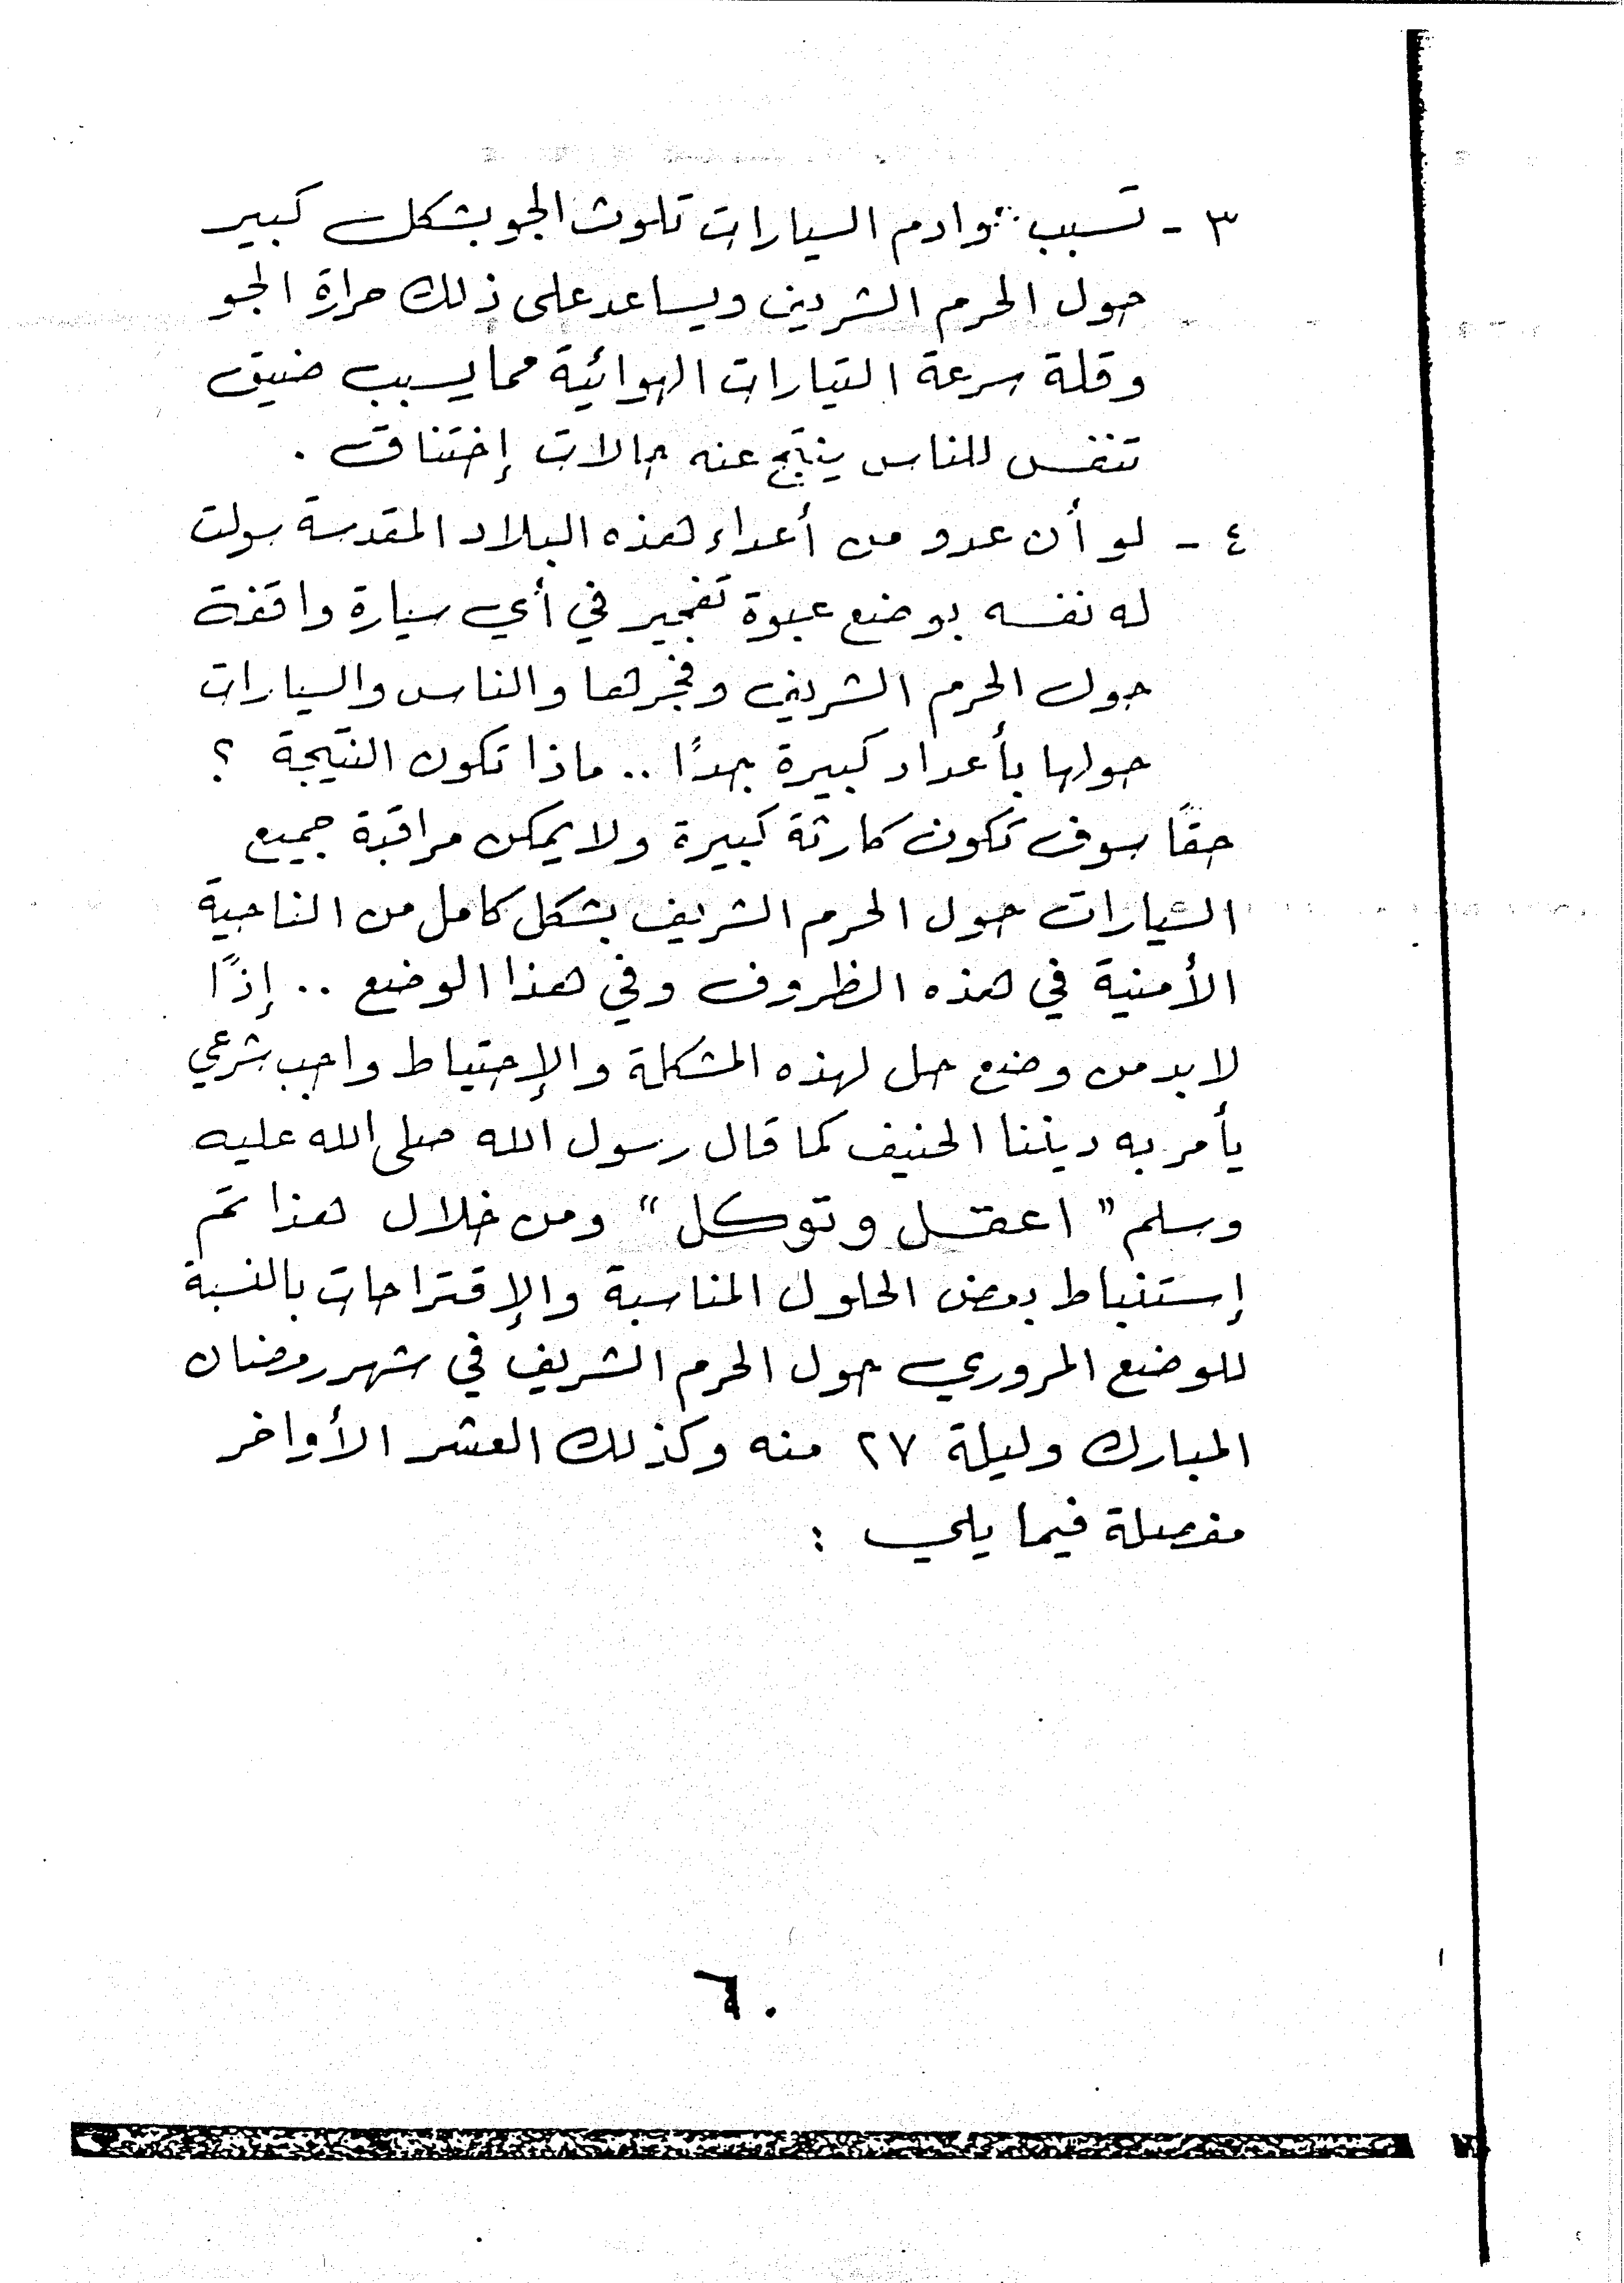 ٣ - تسبب عوادم السيارات تلوث الجو بشكل كبير
حول الحرم الشريف ويساعد على ذلك حرارة الجو
وقلة سرعة التيارات الهوائية مما يسبب ضيق
تنفس للناس ينتج عنه حالات إختناق .
٤ - لو أن عدو من أعداء هذه البلاد المقدسة سولت
له نفسه بوضع عبوة تفجير في أي سيارة واقفة
حول الحرم الشريف وفجرها والناس والسيارات
حولها بأعداد كبيرة جداً .. ماذا تكون النتيجة ؟
حقاً سوف تكون كارثة كبيرة ولا يمكن مراقبة جميع
السيارات حول الحرم الشريف بشكل كامل من الناحية
الأمنية في هذه الظروف وفي هذا الوضع .. إذاً
لابد من وضع حل لهذه المشكلة والإحتياط واجب شرعي
يأمر به ديننا الحنيف كما قال رسول الله صلى الله عليه
وسلم " اعقل وتوكل " ومن خلال هذا تم
إستنباط بعض الحلول المناسبة والإقتراحات بالنسبة
للوضع المروري حول الحرم الشريف في شهر رمضان
المبارك وليلة ٢٧ منه وكذلك العشر الأواخر
مفصلة فيما يلي :
٦